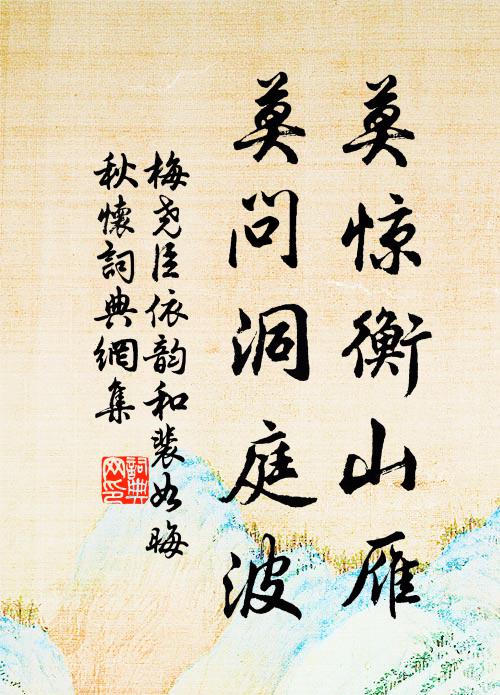 莫惊衡山雁
莫问洞庭波
梅尧臣依韵和裴如晦
秋懷詞典網集
詞典
网印